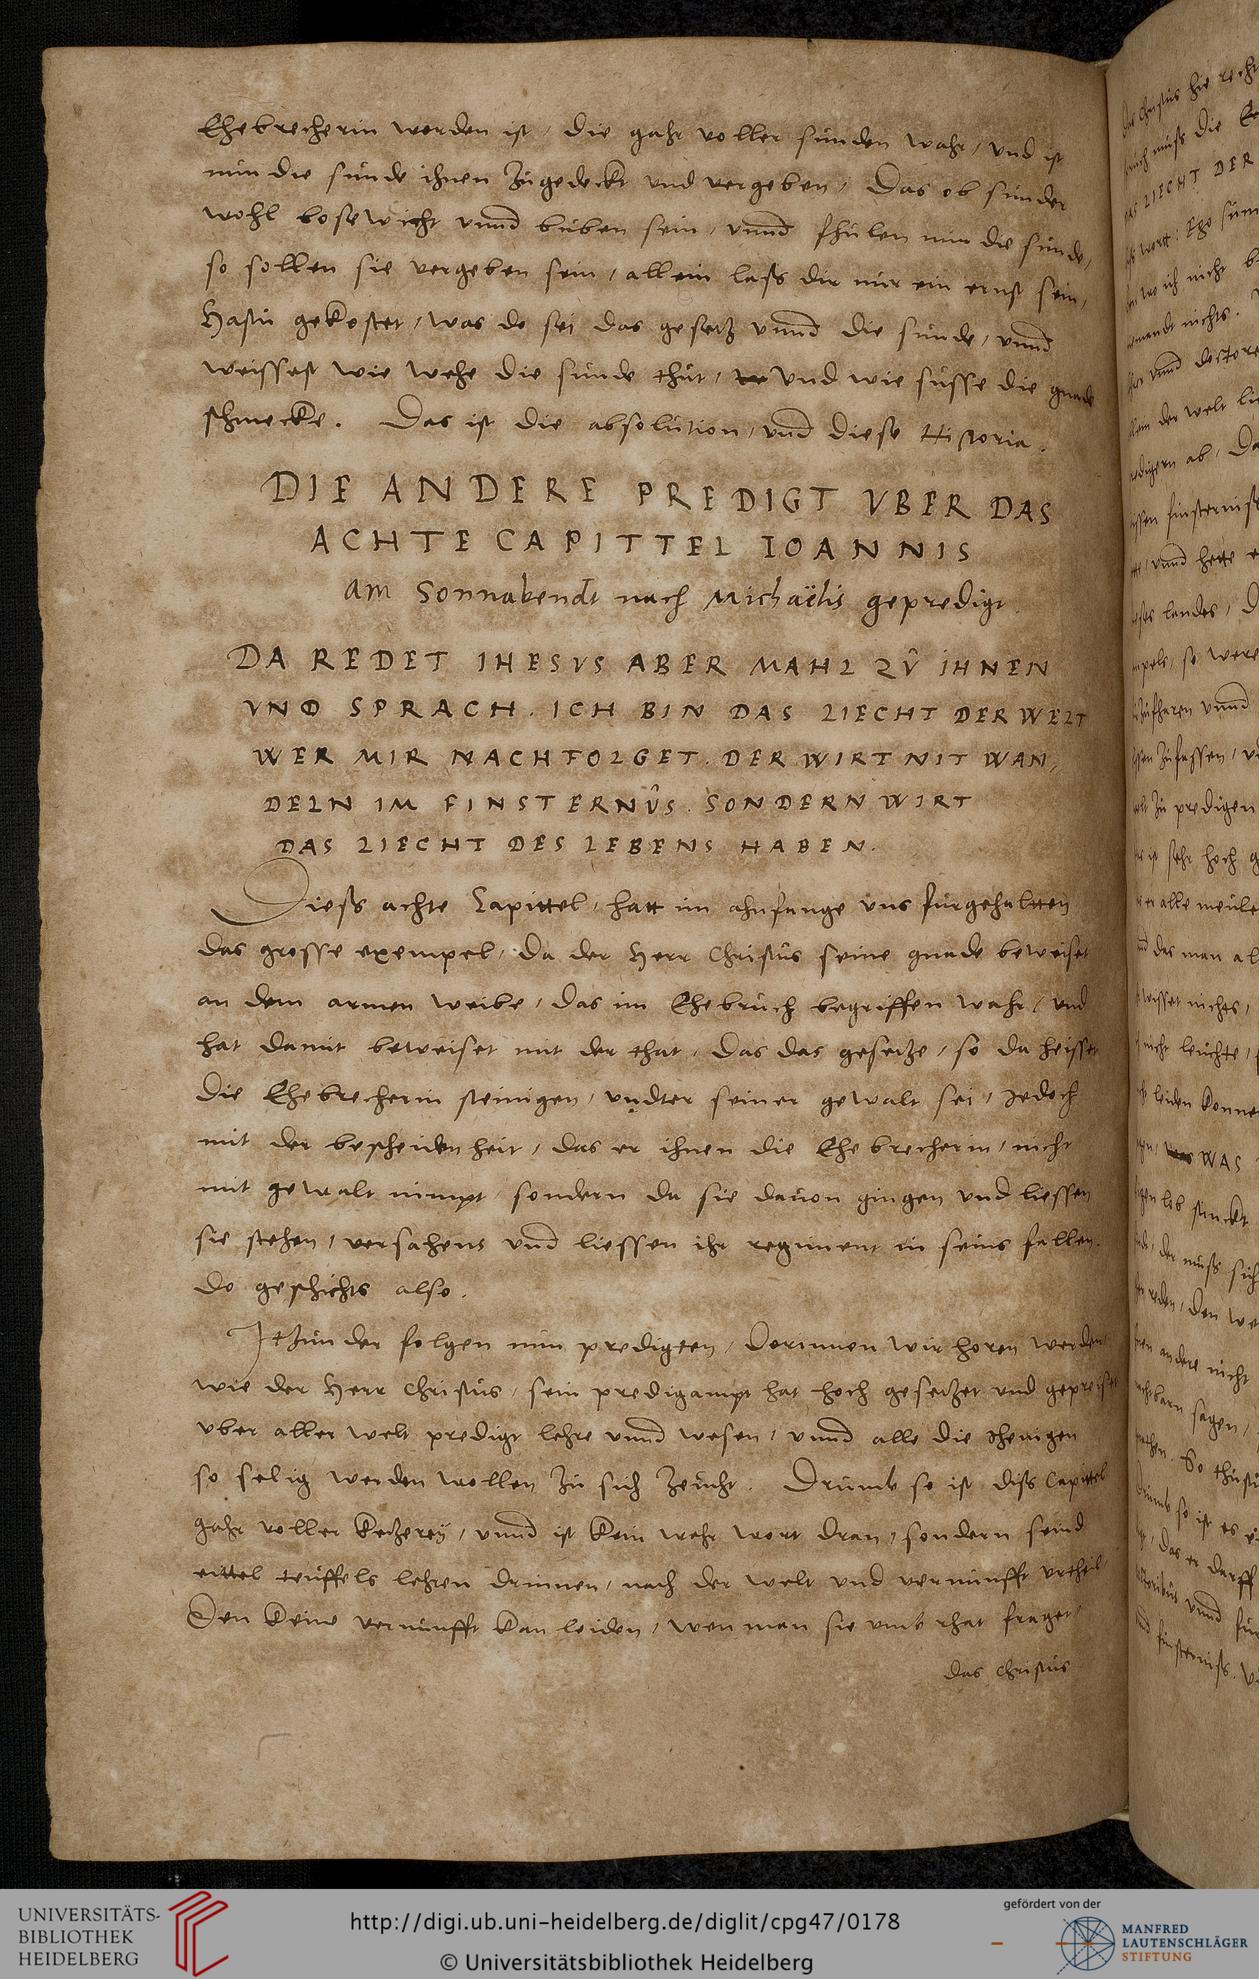 Ehebrecherin worden ist, die gahr voller sunden wahr, und ist
nun die sunde ihnen zugedeckt und vergeben, Das ob sunder
wohl bosewicht unnd buben sein, unnd fhulen nun die sunde,
so sollen sie vergeben sein, allein lass dir nur ein ernst sein,
Hastu gekostet, was do sei das gesetz unnd die sunde, unnd
weissest wie wehe die sunde thut, und wie susse die gnade
schmecke. Das ist die absolution, und diese Historia.
DIE ANDERE PREDIGT VBER DAS
ACHTE CAPITTEL IOANNIS
am Sonnabendt nach Michaëlis gepredigt
DA REDET IHESVS ABER MAHL ZŮ IHNEN
VND SPRACH. ICH BIN DAS LIECHT DER WELT
WER MIR NACHFOLGET. DER WIRT NIT WAN,
DELN IM FINSTERNŮS. SONDERN WIRT
DAS LIECHT DES LEBENS HABEN.
Diess achte Capittel, hatt im ahnfange uns furgehaltten
das grosse exempel, da der Herr Christus seine gnade beweiset
an dem armen weibe, das im Ehebruch begriffen wahr, und
hat damit beweiset mit der that, Das das gesetze, so da heisset
die Ehebrecherin steinigen, undter seiner gewalt sei, Jedoch
mit der bescheidenheit, das er ihnen die Ehebrecherin, nicht
mit gewalt nimpt, sondern da sie davon gingen und liessen
sie stehen, versahens und liessen ihr regiment in seins fallen.
do geschichts also.
Itzunder folgen nun predigten, dorinnen wir horen werden,
wie der Herr Christus, sein predigampt hat hoch gesetzet und gepreiset
uber aller welt predigt lehre unnd wesen, unnd alle die Jhenigen
so selig werden wollen zu sich zeucht. Drumb so ist diss Capittel
gahr voller Ketzerey, unnd ist kein wahr wort dran, sondern seind
eittel teuffels lehren drinnen, nach der welt und vernunfft urtheil,
Den keine vernunfft kan leiden, wen man sie umb rhat fraget,
das Christus
UNIVERSITÄTS-
BIBLIOTHEK
HEIDELBERG
http://digi.ub.uni-heidelberg.de/diglit/cpg47/0178
© Universitätsbibliothek Heidelberg
gefördert von der
MANFRED
LAUTENSCHLÄGER
STIFTUNG